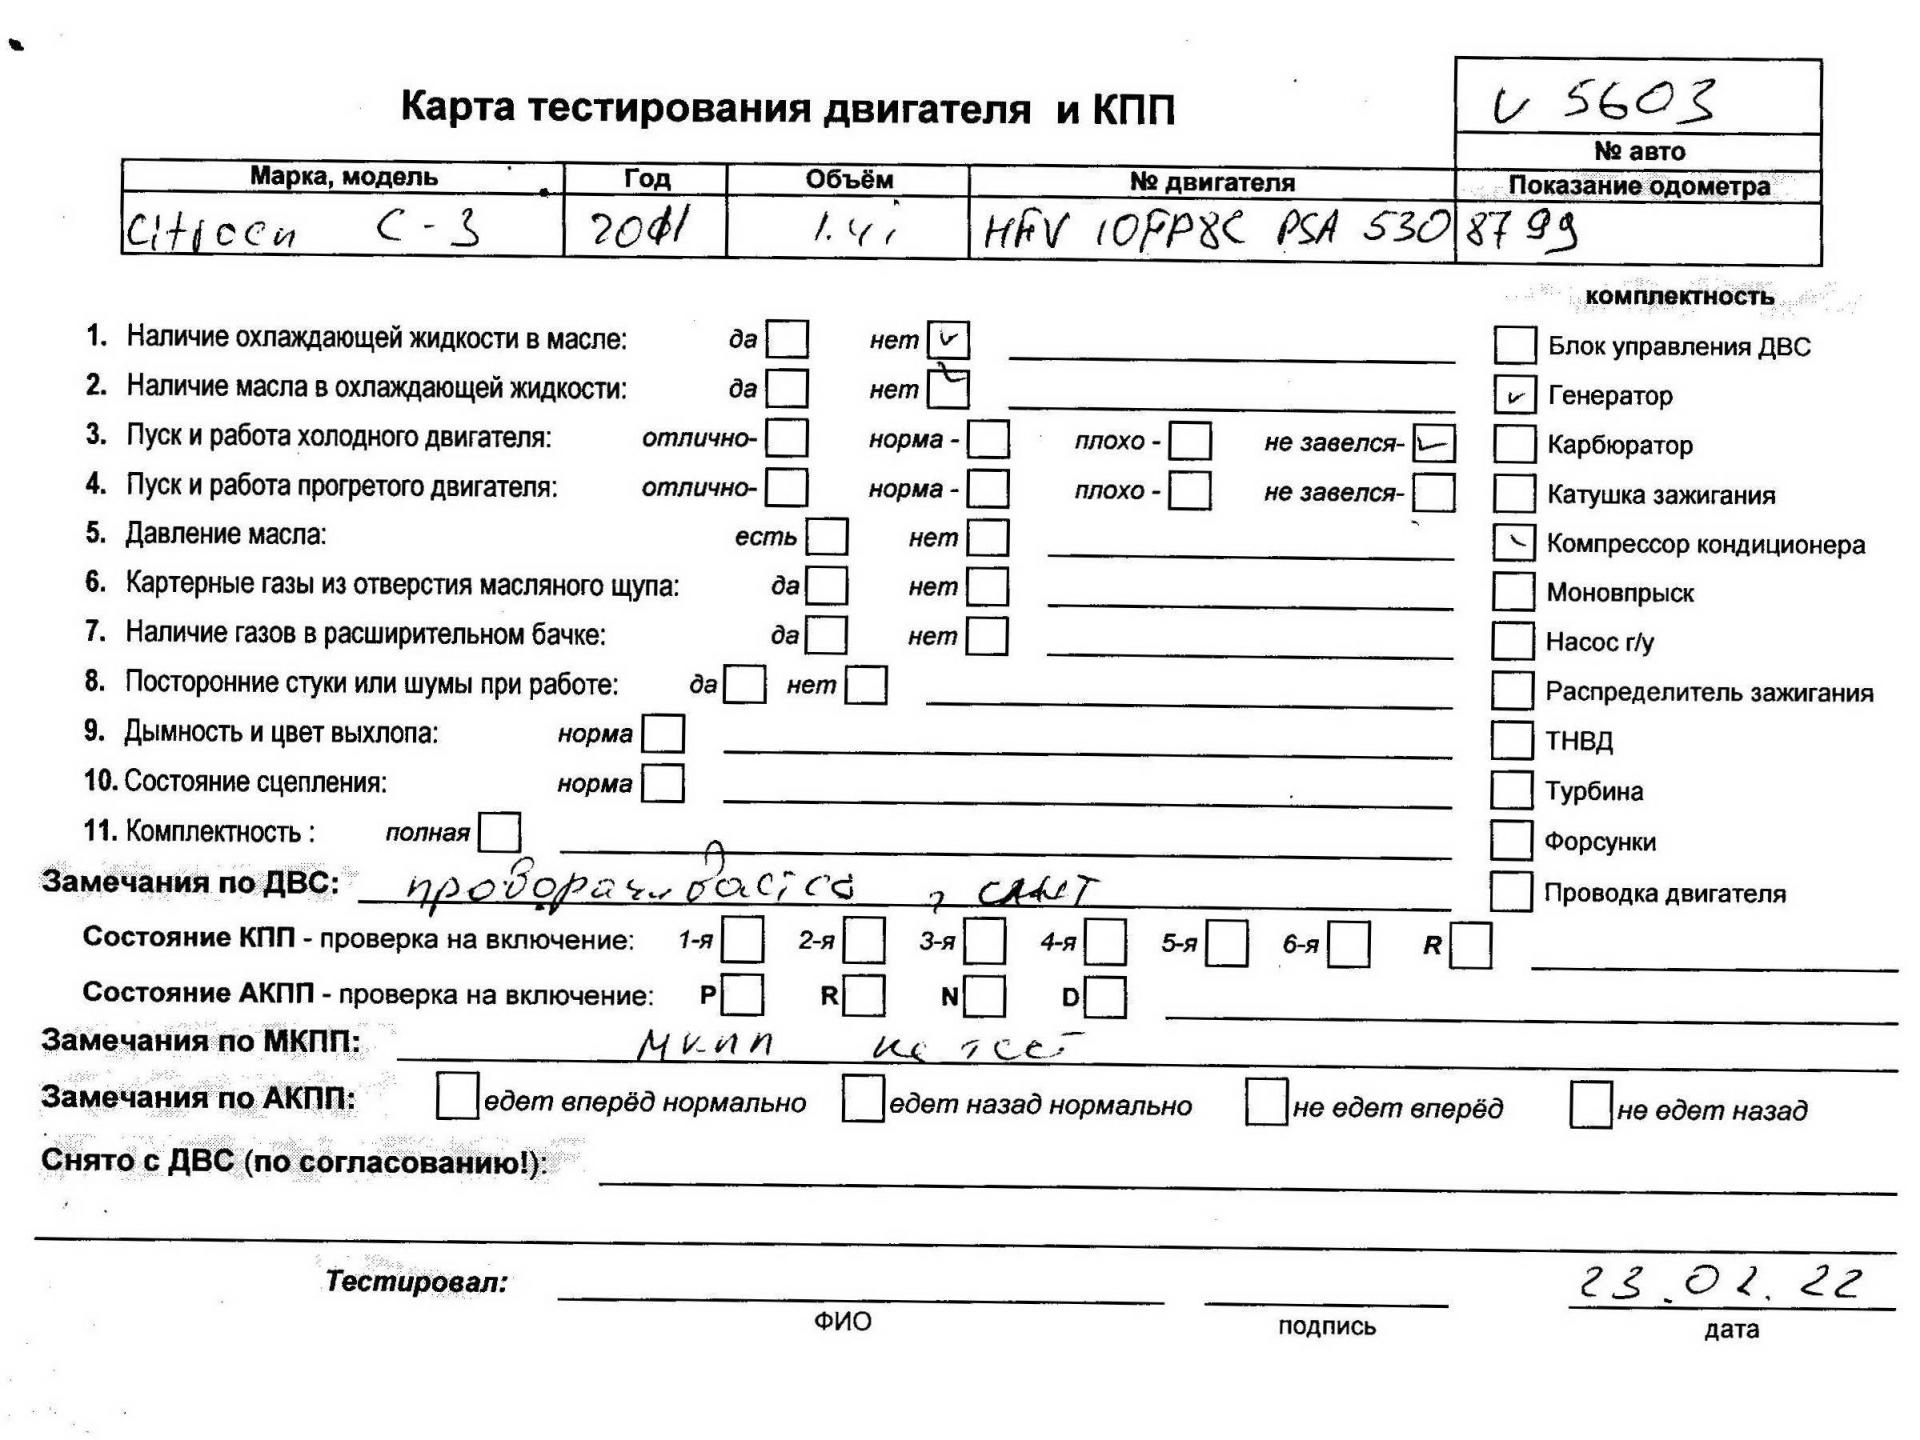 Карта тестирования двигателя и КПП
v 5603
№ авто
Марка, модель Год Объём № двигателя Показание одометра
Citroen C-3 2011 1.4i HFV 10FP8C PSA 530 8799
комплектность
1. Наличие охлаждающей жидкости в масле: да нет v Блок управления ДВС
2. Наличие масла в охлаждающей жидкости: да нет v Генератор
3. Пуск и работа холодного двигателя: отлично- норма - плохо - не завелся- v Карбюратор
4. Пуск и работа прогретого двигателя: отлично- норма - плохо - не завелся- Катушка зажигания
5. Давление масла: есть нет Компрессор кондиционера
6. Картерные газы из отверстия масляного щупа: да нет Моновпрыск
7. Наличие газов в расширительном бачке: да нет Насос г/у
8. Посторонние стуки или шумы при работе: да нет Распределитель зажигания
9. Дымность и цвет выхлопа: норма ТНВД
10. Состояние сцепления: норма Турбина
11. Комплектность : полная Форсунки
Замечания по ДВС: проворачивается, Проводка двигателя
Состояние КПП - проверка на включение: 1-я 2-я 3-я 4-я 5-я 6-я R
Состояние АКПП - проверка на включение: P R N D
Замечания по МКПП: МКПП не тест
Замечания по АКПП: едет вперёд нормально едет назад нормально не едет вперёд не едет назад
Снято с ДВС (по согласованию!):
Тестировал: 23.02.22
ФИО подпись дата